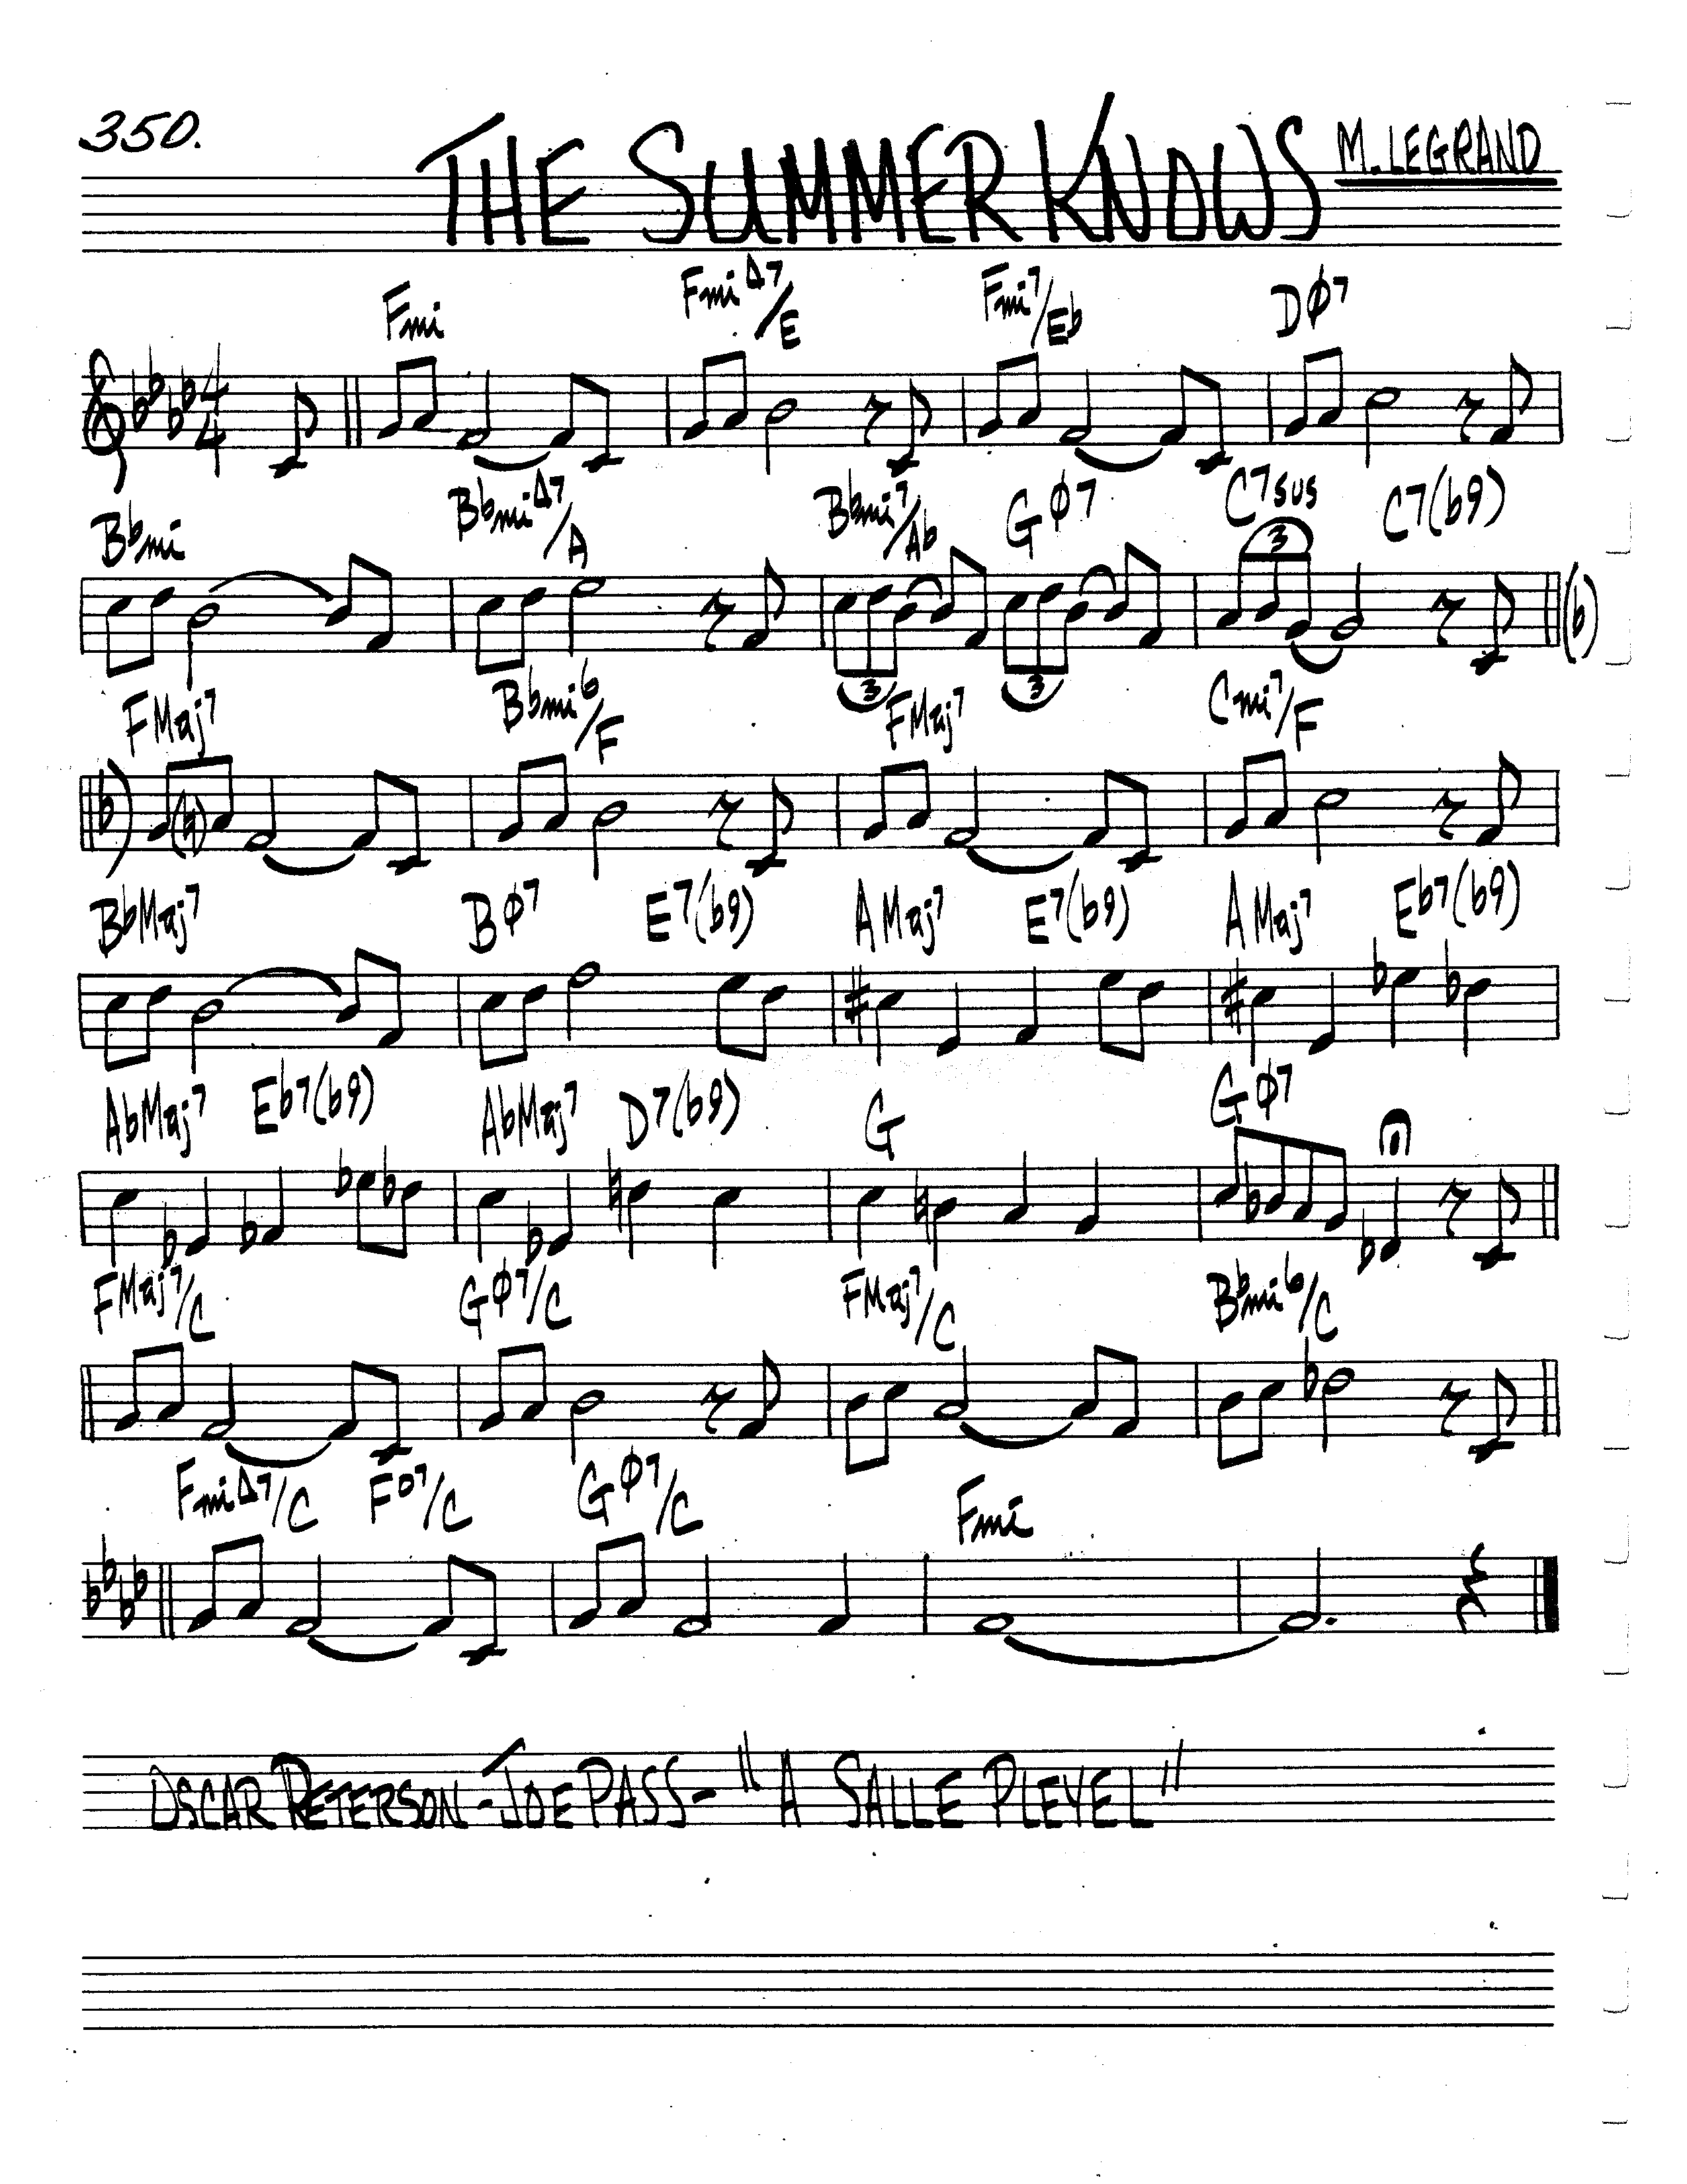 350.
THE SUMMER KNOWS M. LEGRAND
Fmi FmiΔ7/E Fmi7/Eb DØ7
4/4
Bbmi BbmiΔ7/A Bbmi7/Ab GØ7 C7sus C7(b9)
3 3 3
FMaj7 Bbmi6/F FMaj7 Cmi7/F
BbMaj7 BØ7 E7(b9) AMaj7 E7(b9) AMaj7 Eb7(b9)
AbMaj7 Eb7(b9) AbMaj7 D7(b9) G GØ7
FMaj7/C GØ7/C FMaj7/C Bbmi6/C
FmiΔ7/C Fo7/C GØ7/C Fmi
OSCAR PETERSON - JOE PASS - "A SALLE PLEYEL"